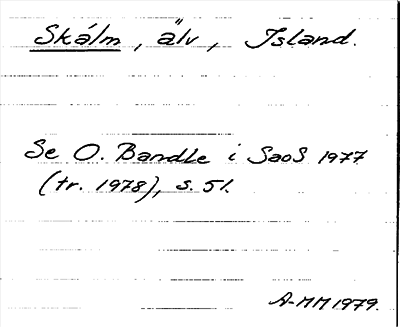 Skálm, älv, Island.
Se O. Bandle i SaoS 1977
(tr. 1978), s. 51.
A-MM 1979.